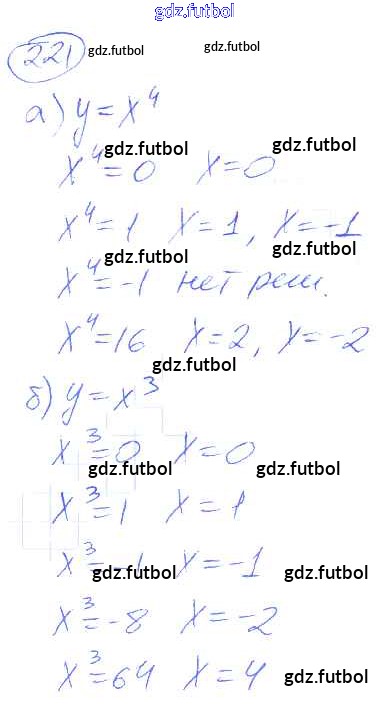 gdz.futbol
221 gdz.futbol gdz.futbol
а) y = x⁴
gdz.futbol gdz.futbol
x⁴ = 0 x = 0
x⁴ = 1 x = 1, x = -1
gdz.futbol gdz.futbol
x⁴ = -1 нет реш.
x⁴ = 16 x = 2, x = -2
gdz.futbol
б) y = x³
x³ = 0 x = 0
gdz.futbol gdz.futbol
x³ = 1 x = 1
x³ = -1 x = -1
gdz.futbol gdz.futbol
x³ = -8 x = -2
x³ = 64 x = 4 gdz.futbol